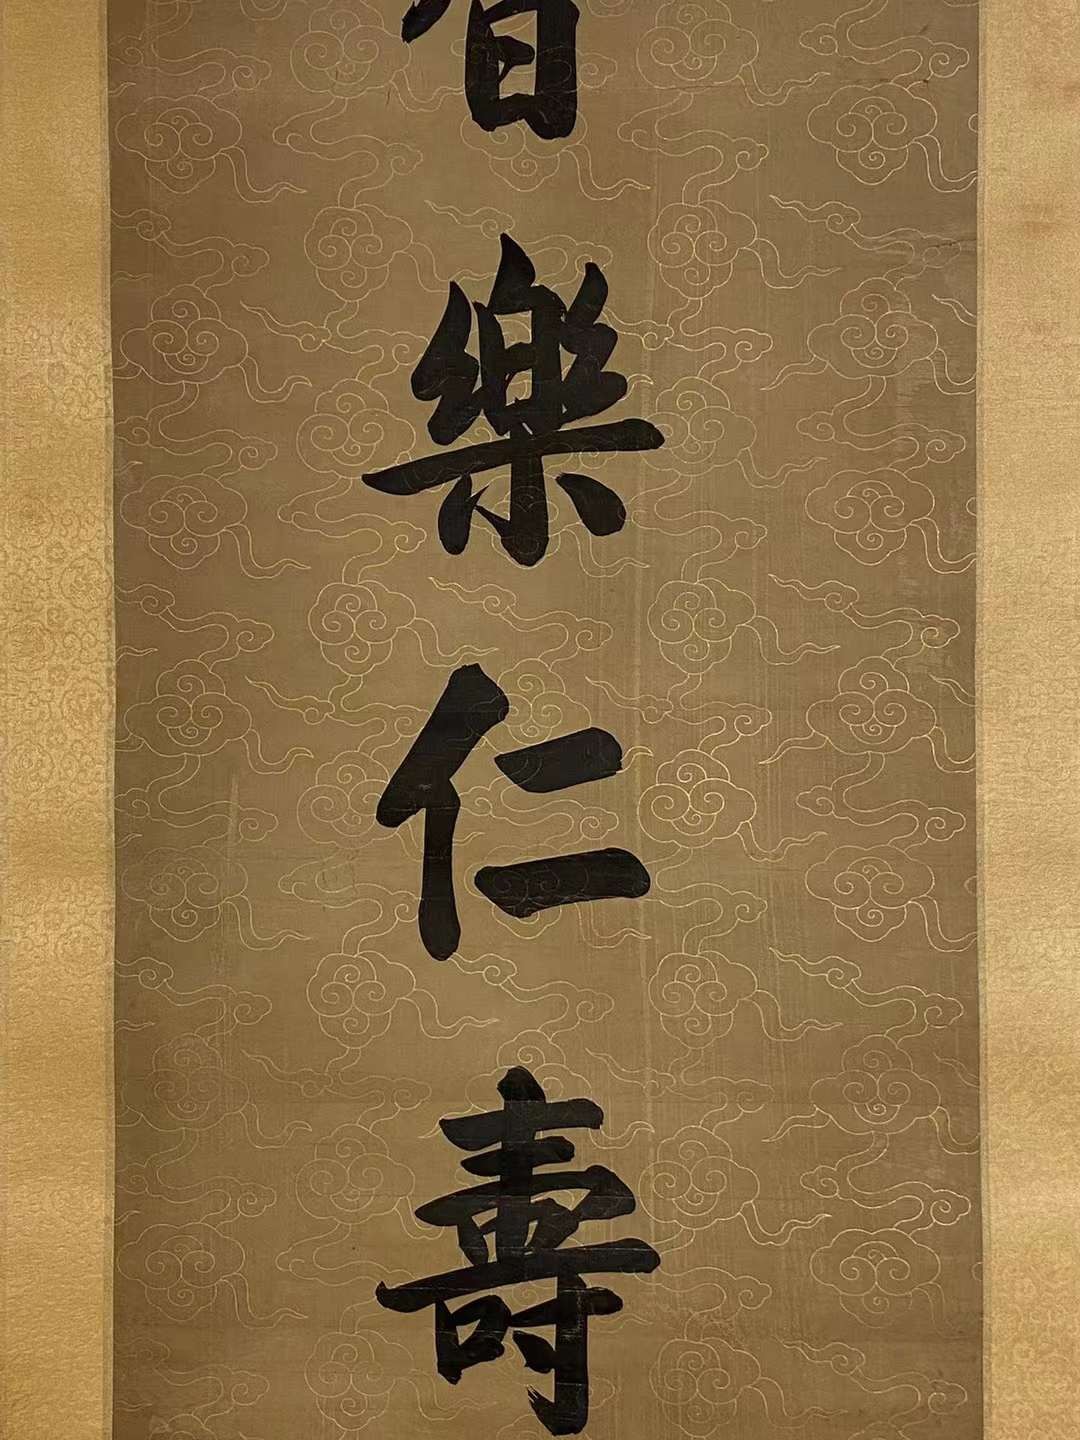 樂仁壽